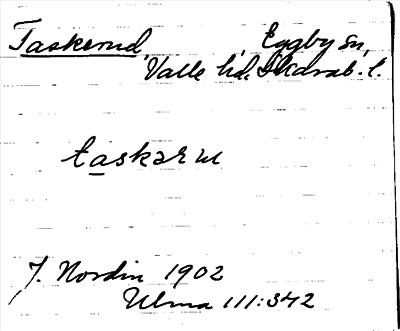 Taskerud, Eggby sn,
Valle hd. Skarab. l.
taskərɯ
J. Nordin 1902
Ulma 111:342